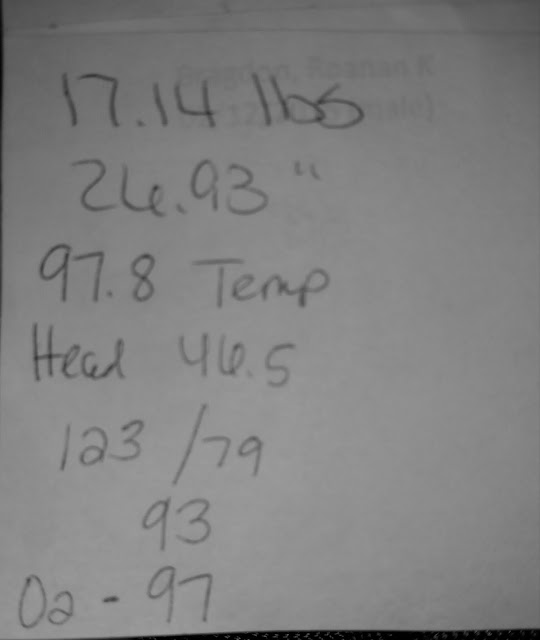 17.14 lbs
26.93 "
97.8 Temp
Head 46.5
123 / 79
93
O2 - 97